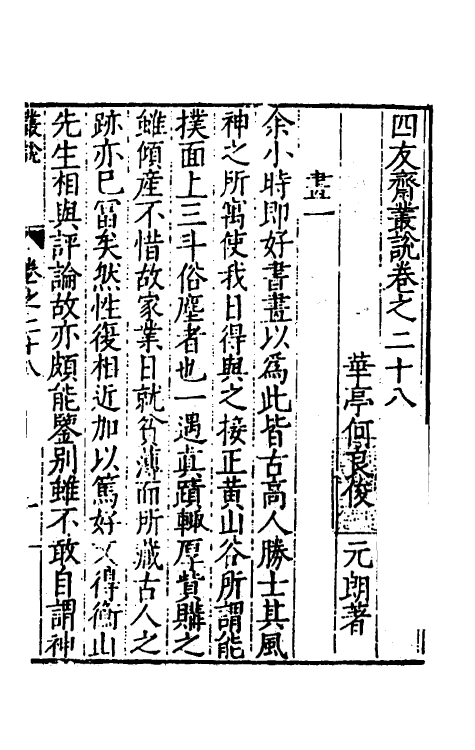 四友齋叢說卷之二十八
華亭何良俊元朗著
畫一
余小時即好書畫以爲此皆古高人勝士其風
神之所寓使我日得與之接正黃山谷所謂能
撲面上三斗俗塵者也一遇眞蹟輙厚貲購之
雖傾產不惜故家業日就貧薄而所藏古人之
跡亦已富矣然性復相近加以篤好又得衡山
先生相與評論故亦頗能鑒別雖不敢自謂神
叢說
卷之二十八
一